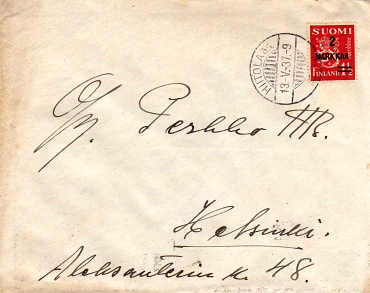 SUOMI
2
MARKKAA
FINLAND 1½
HIITOLA
13.V.37.-9
O/Y. Perkko
Helsinki.
Aleksanterin k. 48.